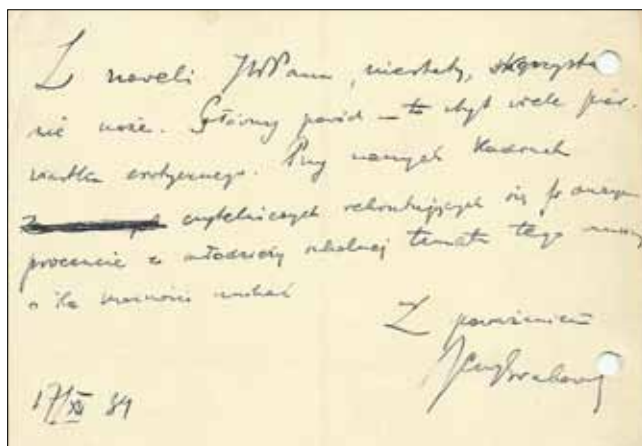 Z noweli JWPana, niestety, skorzystać
nie mogę. Główny powód – to zbyt wiele pier-
wiastka erotycznego. Przy naszych kadrach
czytelniczych rekrutujących się w dużym
procencie z młodzieży szkolnej tematu tego muszę
o ile możności unikać
Z poważaniem
17/XI 34